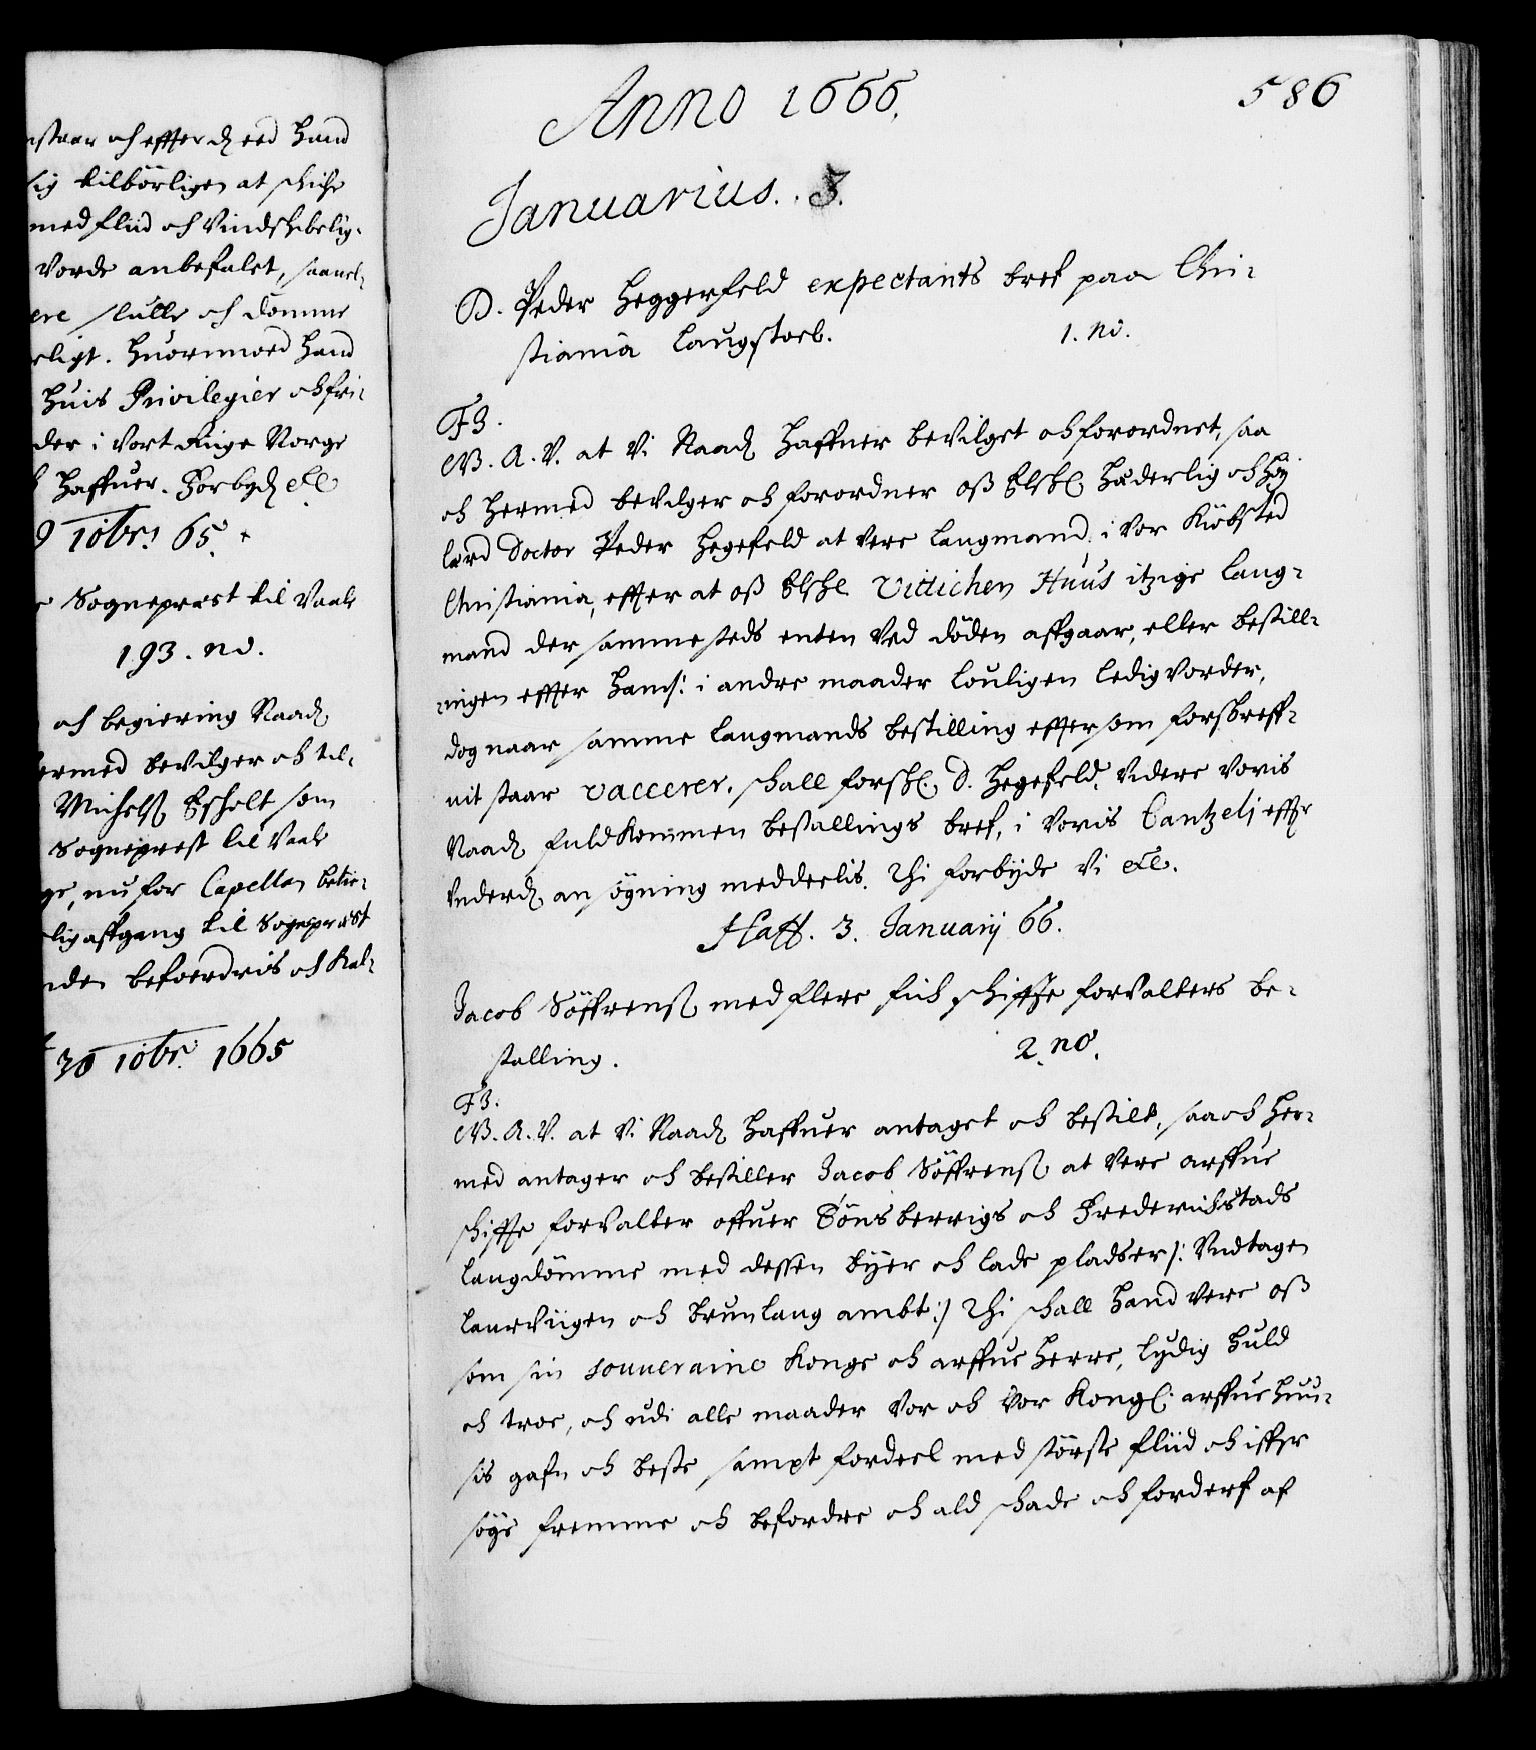 nstaar och effter d eed hand
sig tilbörligen at schiche
med fliid och Vindschibelig-
Vorde anbefalet, saauel-
ere skulle och domme
rligt. huormoed hand
huis Privilegier och fri-
der i Vort Riige Norge
haffuer. Forbyd etc
9 10br: 65.
Sogneprest til Vaale
193. no.
och begiering Naad
ermed bevilger och til-
Michels Escholt som
Sogneprest til Vaale
ge, nu for Capellan betie-
lig affgang til Sogneprest
nden befoerdris och kal-
30 10br. 1665
586
Anno 1666.
Januarius. 3.
D. Peder Heggerfeld expectants bref paa Chri-
stiania Laugstoel. 1. no.
F3.
G.A.V. at Vi Naad haffuer bevilget och forordnet, saa
och hermed bevilger och forordner oß Elschl hæderlig och høy
lærd Doctor Peder Hegefeld at vere Laugmand i Vor Kiøbsted
Christiania, effter at oß Elschl Vittichen Huus itzige Laug-
mand der sammesteds enten Ved döden affgaar, eller bestill-
ningen effter hans: i andre maader Louligen Ledig vorder,
dog naar samme Laugmands bestilling effter som forskreff-
uit staar vaccerer, schall forschl. D. Hegefeld, Videre Voris
Naad fuldkommen bestallings bref, i Voris Cantzelj effter
Vnderd an søgning meddeelis. Thi forbyde Vi etc.
Haff. 3. Januarij 66.
Jacob Söffrenß med flere fick schiffße forvalters be-
stalling. 2. no.
F3.
G.A.V. at Vi Naad haffuer antaget och bestilt, saa och her-
med antager och bestiller Jacob Söffrenß at vere arffue
schiffte forvalter offuer Tönsberrigs och Frederichstads
Laugdömme med dessen byer och Lade pladser /: Vndtagen
Laurviigen och Brunlaug ambt :/ Thi schall hand vere oß
som sin souueraine Konge och arffue Herre, Lydig huld
och troe, och udi alle maader Vor och Vor Kongl. arffue huu-
sis gafn och beste sampt fordeel med störste fliid och iffuer
söge fremme och befordre och ald schade och forderf af